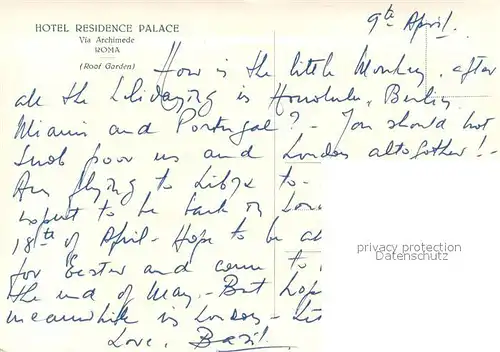 HOTEL RESIDENCE PALACE
Via Archimede
ROMA
(Roof Garden)
9th April.
How is the little Monkey, after
all the holidaying in Honolulu, Berlin,
Miami and Portugal? - You should not
snob poor us and London altogether! -
Am flying to Libya to-
expect to be back in Lon
18th of April - Hope to be
for Easter and come to
the end of May. - But hop
meanwhile in London -
Love, Basil.
privacy protection
Datenschutz